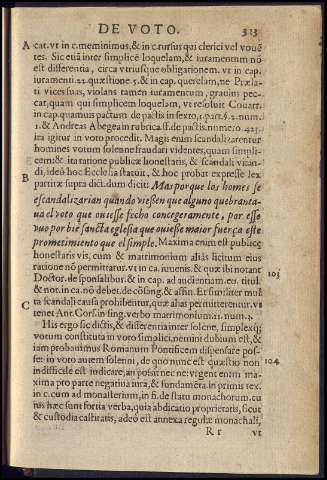 DE VOTO. 313
A cat. vt in c. meminimus, & in c. rursus qui clerici vel vouẽ
tes. Sic etiã inter simplicẽ loquelam, & iuramentum nõ
est differentia, circa vtriusque obligationem. vt in cap.
iuramenti. 22. quæstione 5. & in cap. querelam, ne Præla
ti vices suas, violans tamen iuramentum, grauius pec-
cat, quam qui simplicem loquelam, vt resoluit Couarr.
in cap. quamuis pactum de pactis in sexto, 1. part. §. 2. num.
1. & Andreas Abegea in rubrica. ff. de pactis. numero. 423.
ita igitur in voto procedit. Magis enim scandalizarentur
homines votum solenne fraudari videntes, quam simpli-
cem: & ita ratione publicæ honestatis, & scandali vitan-
B di, ideò hoc Ecclesia statuit, & hoc probat expresse lex
partitæ supra dict. dum dicit: Mas porque los homes se
escandalizarian quando viesen que alguno quebranta-
ua el voto que ouiesse fecho concegeramente, por esso
vuo por bie sancta eglesia que ouiesse maior fuerça este
prometimiento que el simple. Maxima enim est publicę
honestatis vis, cum & matrimonium aliàs licitum eius
ratione nõ permittatur. vt in ca. iuuenis. & quæ ibi notant
Doctor. de sponsalibus. & in cap. ad audientiam. eo. titul. 103
& not. in ca. nõ debet. de cõsang. & affin. Et similiter mul
C ta scandali causa prohibentur, quæ alias permitterentur. vt
tenet Ant. Cors. in sing. verbo matrimonium. 21. num. 3.
His ergo sic dictis, & differentia inter solẽne, simplexq;
votum constituta in voto simplici, nemini dubium est, &
iam probauimus Romanum Pontificem dispensare pos-
se: in voto autem solenni, de quo nunc est quæstio non 104
indifficile est iudicare, an possit nec ne: vrgent enim ma-
xima pro parte negatiua iura, & fundamẽta. in primis tex.
in c. cum ad monasterium, in fi. de statu monachorum. cu
ius hæc sunt fortia verba, quia abdicatio proprietatis, sicut
& custodia castitatis, adeò est annexa regulæ monachali,
R r vt